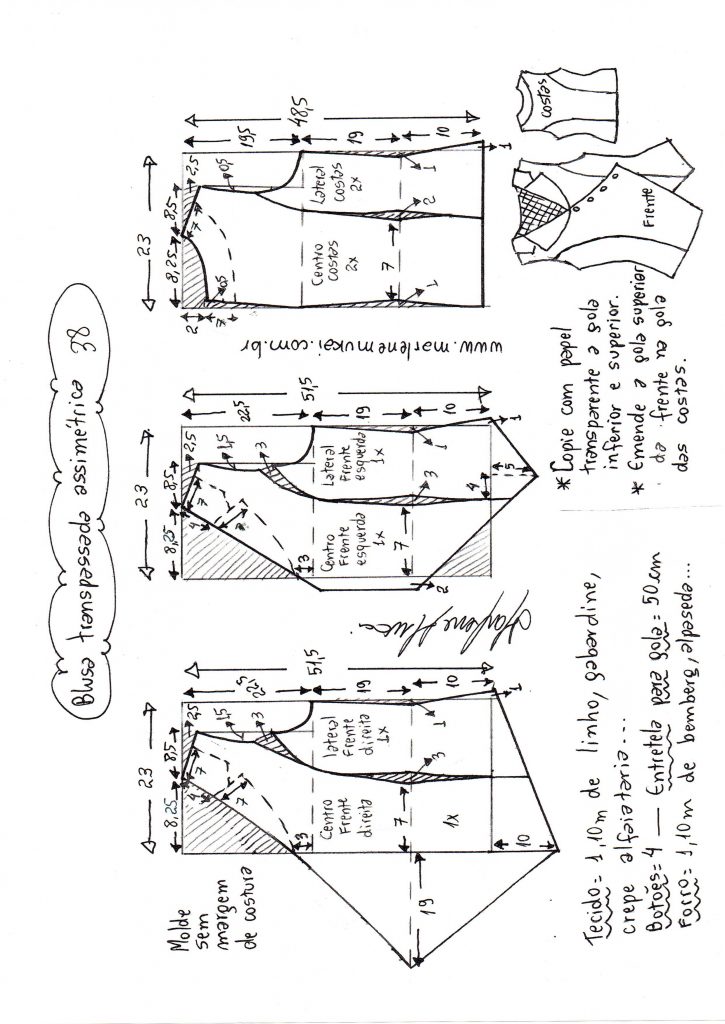 Blusa transpassada assimétrica 38
Molde
sem
margem
de costura
23
8,25
8,5
2,5
4
7
7
1,5
3
3
22,5
51,5
19
10
lateral
frente
direita
1x
Centro
Frente
direita
1x
7
3
1
1
10
19
Marlene Mukai
23
8,25
8,5
2,5
4
7
7
1,5
3
3
22,5
51,5
19
10
Lateral
Frente
esquerda
1x
Centro
Frente
esquerda
1x
7
3
1
1
4
15
2
www.marlenemukai.com.br
23
8,25
8,5
2,5
7
0,5
2
7
0,5
19,5
48,5
19
10
Lateral
costas
2x
Centro
costas
2x
7
2
1
1
1
Tecido= 1,10m de linho, gabardine,
crepe alfaiataria...
Botões= 4 — Entretela para gola = 50cm
Forro= 1,10m de bemberg, alpaseda...
* Copie com papel
transparente a gola
inferior e superior.
* Emende a gola superior
da frente na gola
das costas.
Frente
costas